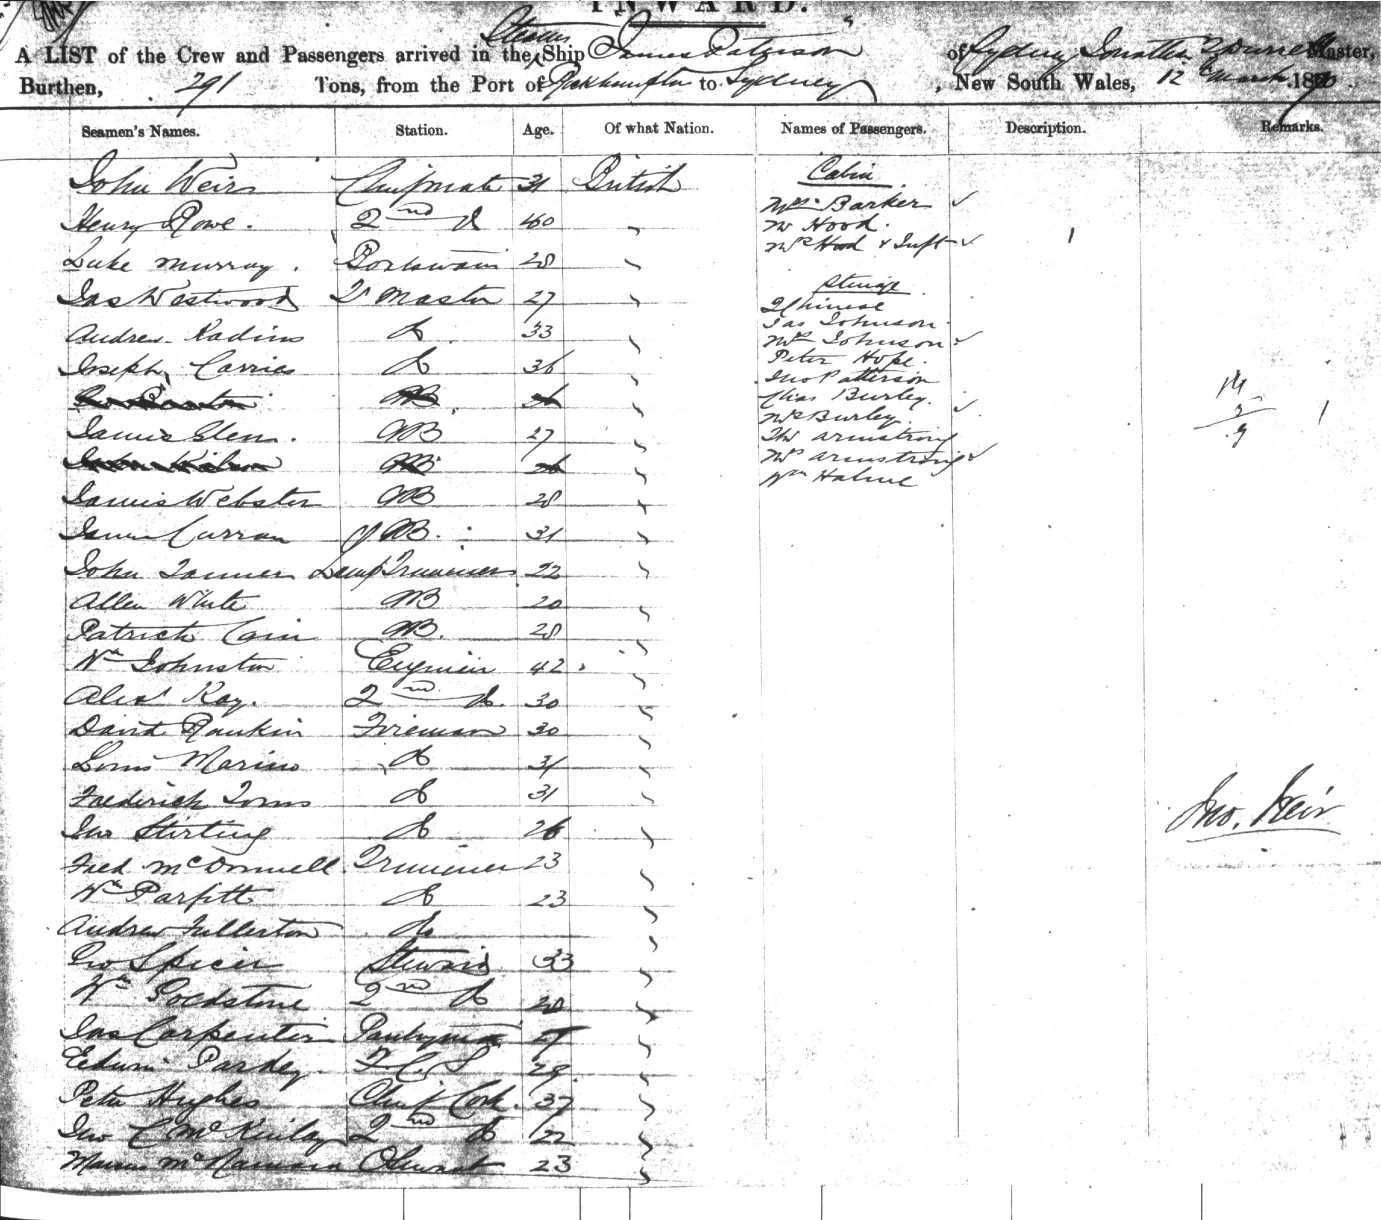 INWARD.
A LIST of the Crew and Passengers arrived in the Steam Ship James Paterson of Sydney Master,
Burthen, 291 Tons, from the Port of Rockhampton to Sydney, New South Wales, 12 March 18
Seamen's Names. Station. Age. Of what Nation. Names of Passengers. Description. Remarks.
John Weir Chief mate 31 British
Henry Rowe. 2nd do 40 "
Luke Murray. Boatswain 28 "
Jas Westwood Qr Master 27 "
Andrew do 33 "
Joseph do 36 "
AB
James Glen. AB 27 "
AB
James Webster AB 28 "
James Curran AB. 31 "
John Tanner Lamp Trimmer 22 "
Allen White AB 20 "
Patrick Cain AB. 28 "
Wm Johnston Engineer 42 "
Alexr Kay. 2nd do. 30 "
David Rankin Fireman 30 "
Louis Marino do 31 "
Frederick Toms do 31 "
Jno Stirling do 26 "
Fred McDonnell Trimmer 23 "
Wm Parfitt do 23 "
Andrew Fullerton do "
Geo Spicer Steward 33 "
Wm 2nd do 28 "
Jas Carpenter Pantryman "
Edwin Pardey. F.C.S 29 "
Peter Hughes Chief Cook. 37 "
Jno C McKinlay 2nd do 22 "
McNamara 23 "
Cabin
Mrs Barker
Mr Hood.
Mrs Hood & Inft 1
Steerage
2 Chinese
Jas Johnson
Mrs Johnson
Peter Hope.
Jno Patterson
Chas Burley.
Mrs Burley.
Thos Armstrong
Mrs Armstrong
Wm
14
9
1
Jno. Weir